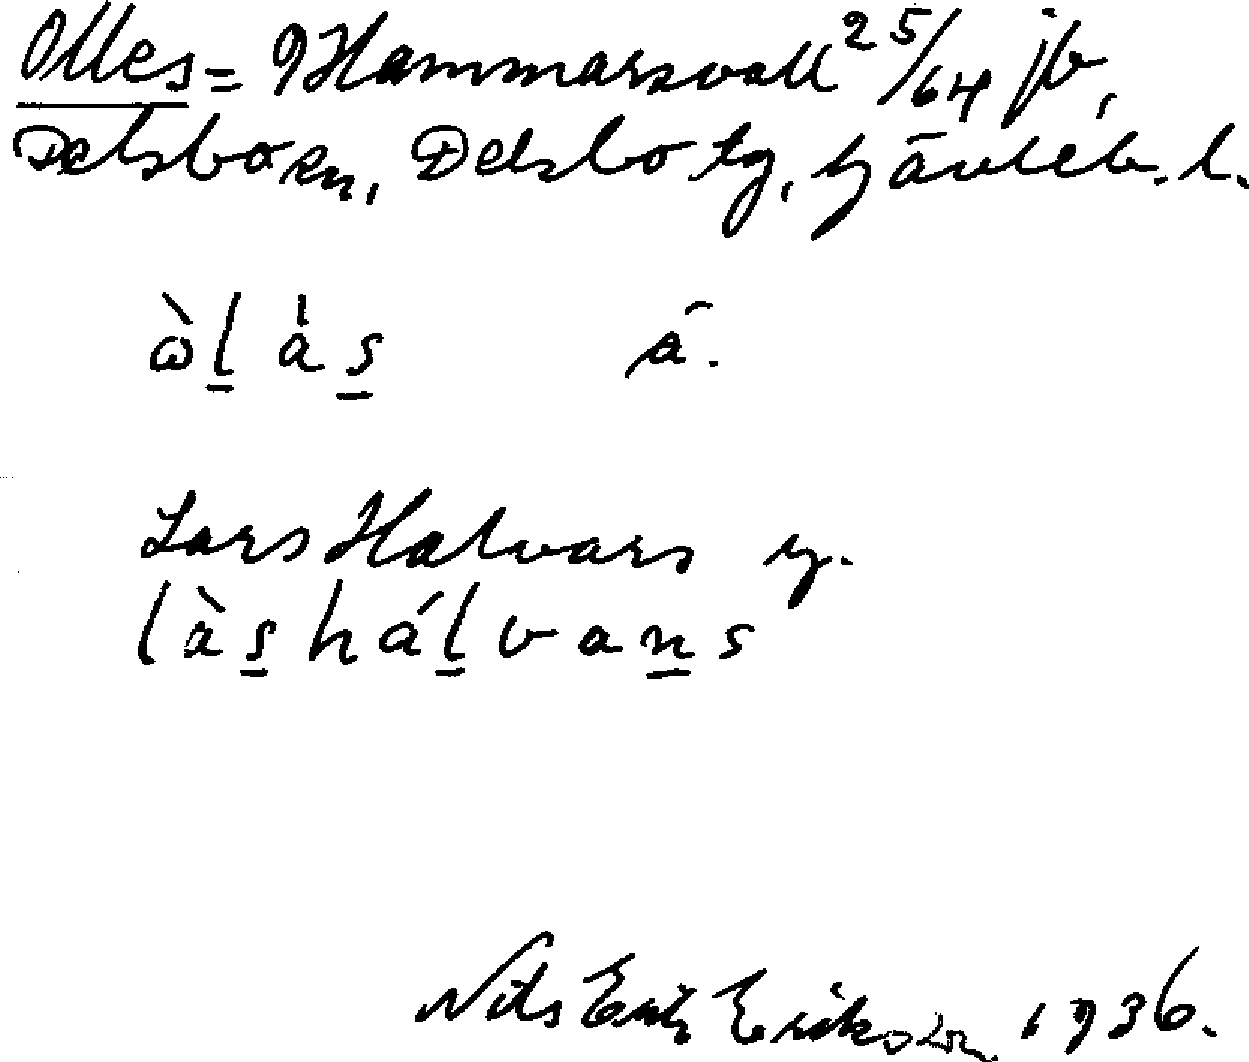 Olles = Hammarsvall 25/64 jb,
Delsbo sn, Delsbo tg, Gävleb. l.
ὼl às ä.
Lars Halvars g.
làshálvans
Nils Erik Erikson 1936.